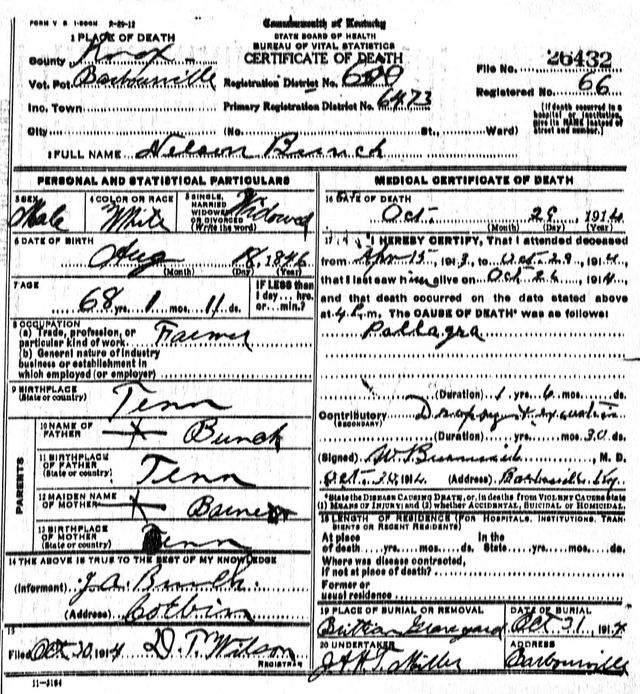 FORM V S 1-500M 2-29-12
Commonwealth of Kentucky
STATE BOARD OF HEALTH
BUREAU OF VITAL STATISTICS
CERTIFICATE OF DEATH
1 PLACE OF DEATH
County Knox
Vot. Pct Barbourville
Inc. Town
City (No. St., Ward)
Registration District No. 609
Primary Registration District No. 6473
File No. 26432
Registered No. 66
(If death occurred in a hospital or institution, give its NAME instead of street and number.)
2 FULL NAME Nelson Bunch
PERSONAL AND STATISTICAL PARTICULARS
3 SEX Male
4 COLOR OR RACE White
5 SINGLE, MARRIED WIDOWED OR DIVORCED (Write the word) Widowed
6 DATE OF BIRTH Aug 18, 1846
(Month) (Day) (Year)
7 AGE 68 yrs. 1 mos. 11 ds.
IF LESS than 1 day... hrs. or... min.?
8 OCCUPATION
(a) Trade, profession, or particular kind of work Farmer
(b) General nature of industry business or establishment in which employed (or employer)
9 BIRTHPLACE (State or country) Tenn
PARENTS
10 NAME OF FATHER X Bunch
11 BIRTHPLACE OF FATHER (State or country) Tenn
12 MAIDEN NAME OF MOTHER X
13 BIRTHPLACE OF MOTHER (State or country) Tenn
14 THE ABOVE IS TRUE TO THE BEST OF MY KNOWLEDGE
(Informant) J.A. Bunch.
(Address) Corbin
15
Filed Oct 30, 1914 D.T. Wilson
REGISTRAR
11-3184
MEDICAL CERTIFICATE OF DEATH
16 DATE OF DEATH
Oct. 29, 1914
(Month) (Day) (Year)
17 I HEREBY CERTIFY, That I attended deceased
from Apr 15, 1913, to Oct 29, 1914,
that I last saw him alive on Oct 26, 1914,
and that death occurred on the date stated above
at 4 P.m. The CAUSE OF DEATH* was as follows:
Pallagra
(Duration) 1 yrs. 6 mos. ds.
Contributory (SECONDARY)
(Duration) yrs. mos. 30 ds.
(Signed) M. D.
Oct. 30, 1914. (Address) Barbourville Ky.
*State the DISEASE CAUSING DEATH, or, in deaths from VIOLENT CAUSES state (1) MEANS OF INJURY; and (2) whether ACCIDENTAL, SUICIDAL or HOMICIDAL.
18 LENGTH OF RESIDENCE (FOR HOSPITALS, INSTITUTIONS, TRANSIENTS OR RECENT RESIDENTS)
At place of death yrs. mos. ds. In the State yrs. mos. ds.
Where was disease contracted, If not at place of death?
Former or usual residence
19 PLACE OF BURIAL OR REMOVAL Brittian Graveyard
DATE OF BURIAL Oct 31, 1914
20 UNDERTAKER Miller
ADDRESS Barbourville